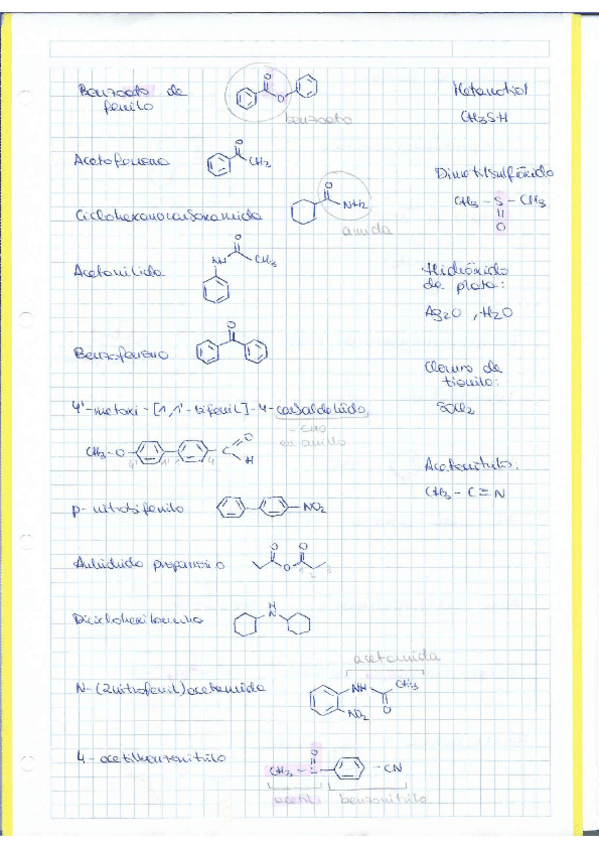 Benzoato de
fenilo
O
O
benzoato
Metanotiol
CH3SH
Acetofenona
O
CH3
Dimetilsulfóxido
CH3 - S - CH3
O
Ciclohexanocarboxamida
O
NH2
amida
Acetanilida
NH
O
CH3
Hidróxido
de plata:
Ag2O , H2O
Benzofenona
O
Cloruro de
tionilo:
SOCl2
4'-metoxi-[1,1'-bifenil]-4-carbaldehído
- CHO
CH3 - O
4' 1' 1 4
C
O
H
Acetonitrilo.
CH3 - C ≡ N
p- nitrobifenilo
NO2
Anhídrido propanoico
O O
O
1 2 3
Diciclohexilamina
H
N
acetamida
N-(2nitrofenil)acetamida
NH
CH3
O
NO2
4-acetilbenzonitrilo
O
CH3 - C
- CN
acetil
benzonitrilo